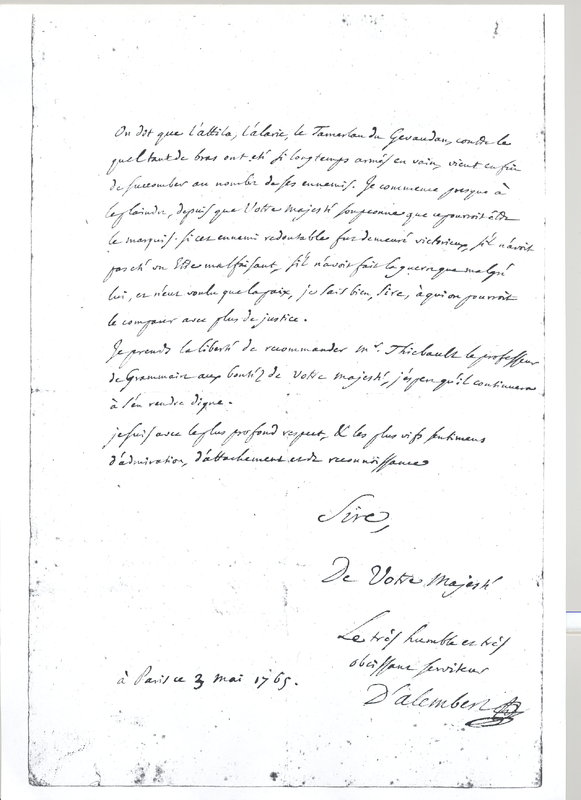 On dit que l'attila, l'alaric, le Tamerlan du Gevaudan, contre le
quel tant de bras ont eté si longtemps armés en vain, vient enfin
de succomber au nombre de ses ennemis. Je commence presque à
le plaindre, depuis que Votre majesté soupçonne que ce pourroit être
le marquis. si cet ennemi redoutable fut demeuré victorieux, s'il n'avoit
pas eté un Etre malfaisant, s'il n'avoit fait la guerre que malgré
lui, et n'eut voulu que la paix, je sais bien, Sire, à qui on pourroit
le comparer avec plus de justice.
Je prends la liberté de recommander mr. Thiebault le professeur
de Grammaire aux bontéz de Votre majesté, j'espere qu'il continuera
à s'en rendre digne.
je suis avec le plus profond respect, & les plus vifs sentimens
d'admiration, d'attachement et de reconnoissance
Sire,
De Votre Majesté
Le très humble et très
obeissant serviteur
D'alembert
à Paris ce 3 mai 1765.